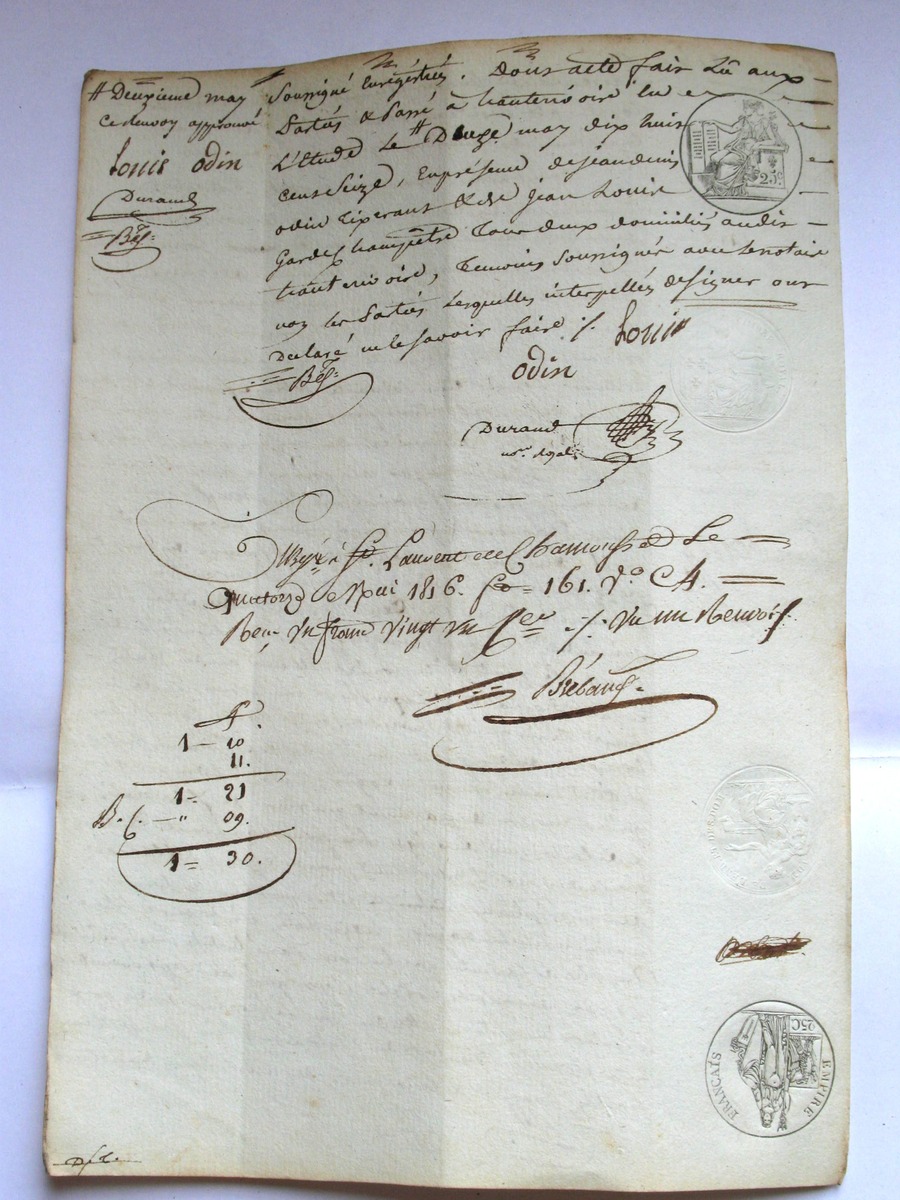 # Deuxieme may
ce renvoy approuvé
Louis odin
Durand
soussigné Enregistrés. Dont acte fait Lu aux
Parties & Passé à hauterivoire en
L'Etude Le # Douze may dix huit
cent Seize, En présence de jean denis
odin Tixerant & de jean Louis
Garde champêtre Tous deux domiciliés audit
hauterivoire, Temoins soussignés avec le notaire
non les Parties Lesquelles interpellées de signer ont
Declaré ne le savoir faire ./. Louis
odin
Durand
nore royal
Enregré à St. Laurent de Chamousset Le
quatorze Mai 1816. fo = 161. Vo C 4.
Reçu Un franc Vingt Un Ces ./. Vu un Renvoi ./.
f
1 — 10
11.
1 = 21
— " 09.
1 = 30.
25c
25C
EMPIRE
FRANÇAIS